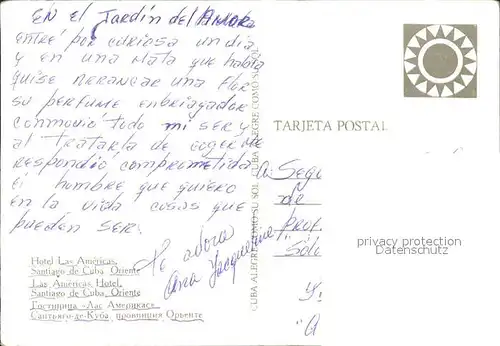 EN EL Jardín del AMOR
entré por curiosa un día
y en una mata que había
quise arrancar una flor
su perfume enbriagador
conmovió todo mi ser y
al tratarla de cogerme
respondió comprometida
el hombre que quiero
en la vida cosas que
pueden ser.
Te adora
Ana Jacqueline
CUBA ALEGRE COMO SU SOL CUBA ALEGRE COMO SU SOL
TARJETA POSTAL
a: Segu
de
Prof.
Sólo
privacy protection
AnsichtskartenVersand.com
Hotel Las Américas,
Santiago de Cuba, Oriente
Las Américas Hotel,
Santiago de Cuba, Oriente
Гостиница «Лас Америкас»
Сантьяго-де-Куба, провинция Орьенте